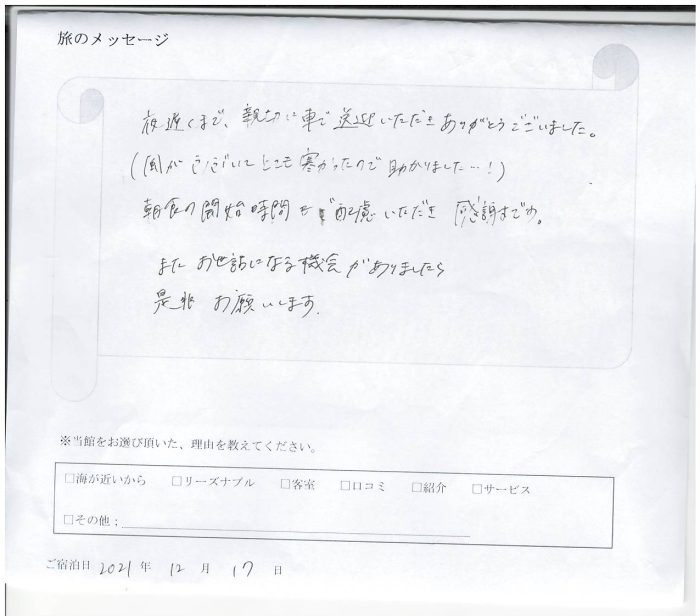 旅のメッセージ
夜遅くまで、親切に車で送迎いただきありがとうございました。
(風が とても寒かったので助かりました…!)
朝食の開始時間もご配慮いただき 感謝です。
また お世話になる機会がありましたら
是非 お願いします.
※当館をお選び頂いた、理由を教えてください。
□海が近いから □リーズナブル □客室 □口コミ □紹介 □サービス
□その他:
ご宿泊日 2021 年 12 月 17 日